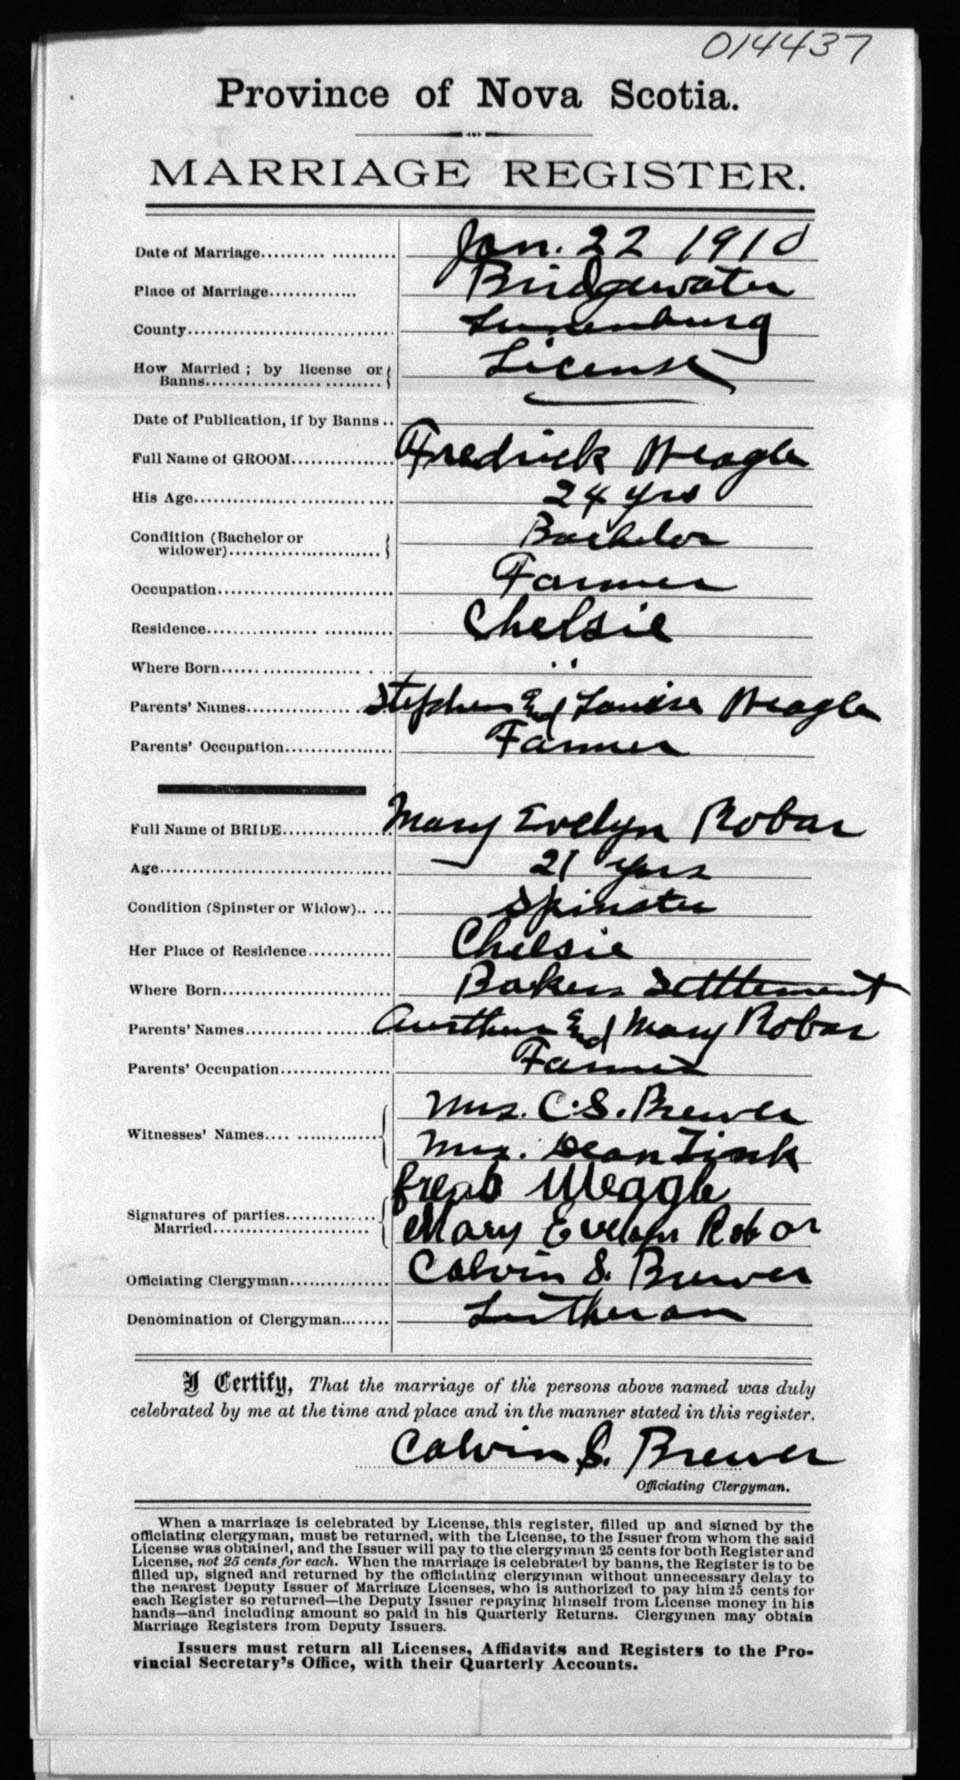 014437
Province of Nova Scotia.
MARRIAGE REGISTER.
Date of Marriage Jan. 22 1910
Place of Marriage Bridgewater
County Lunenburg
How Married; by license or
Banns License
Date of Publication, if by Banns
Full Name of GROOM Fredrick Weagle
His Age 24 yrs
Condition (Bachelor or
widower) Bachelor
Occupation Farmer
Residence Chelsie
Where Born "
Parents' Names Stephen End Louisa Weagle
Parents' Occupation Farmer
Full Name of BRIDE Mary Evelyn Robar
Age 21 yrs
Condition (Spinster or Widow) Spinster
Her Place of Residence Chelsie
Where Born Bakers Settlement
Parents' Names Aurthur End Mary Robar
Parents' Occupation Farmer
Mrs. C. S. Brewer
Witnesses' Names
Mrs. Dean Zink
Weagle
Signatures of parties
Married Mary Evelyn Robar
Officiating Clergyman Calvin S. Brewer
Denomination of Clergyman Lutheran
I Certify, That the marriage of the persons above named was duly
celebrated by me at the time and place and in the manner stated in this register.
Calvin S. Brewer
Officiating Clergyman.
When a marriage is celebrated by License, this register, filled up and signed by the
officiating clergyman, must be returned, with the License, to the Issuer from whom the said
License was obtained, and the Issuer will pay to the clergyman 25 cents for both Register and
License, not 25 cents for each. When the marriage is celebrated by banns, the Register is to be
filled up, signed and returned by the officiating clergyman without unnecessary delay to
the nearest Deputy Issuer of Marriage Licenses, who is authorized to pay him 25 cents for
each Register so returned—the Deputy Issuer repaying himself from License money in his
hands—and including amount so paid in his Quarterly Returns. Clergymen may obtain
Marriage Registers from Deputy Issuers.
Issuers must return all Licenses, Affidavits and Registers to the Pro-
vincial Secretary's Office, with their Quarterly Accounts.